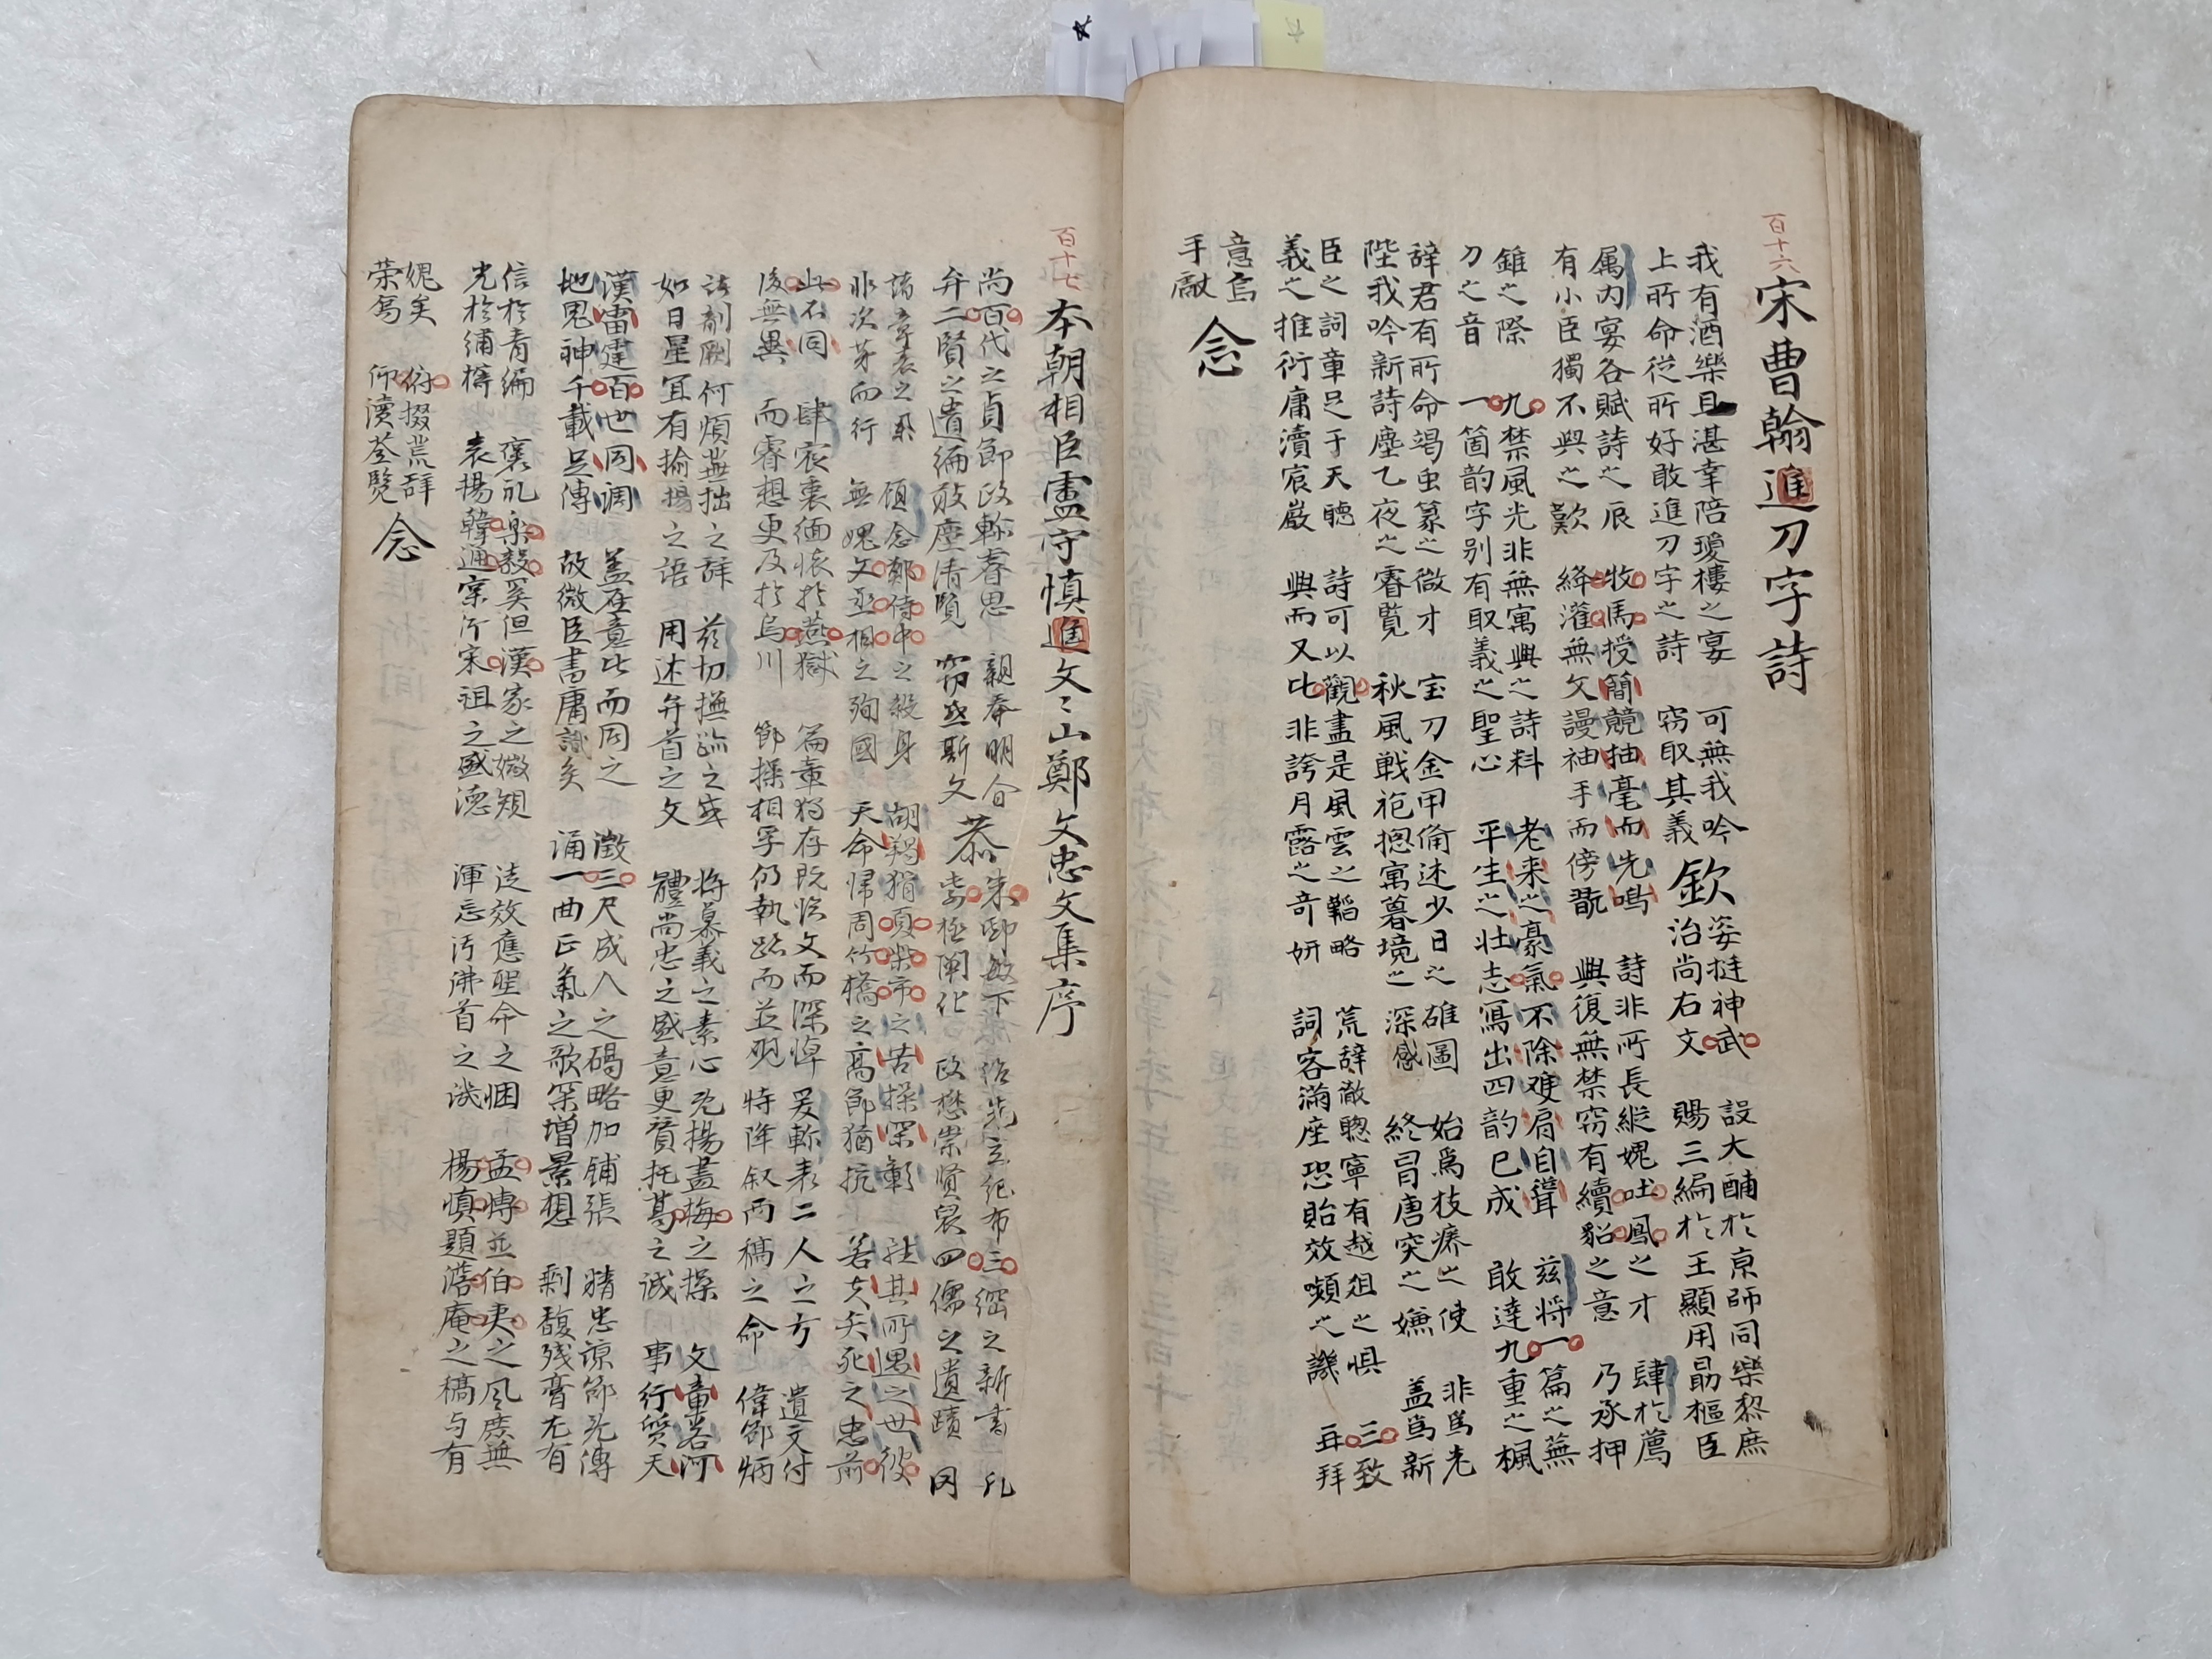 百十六
宋曹翰進刀字詩
我有酒樂且湛幸陪瓊樓之宴 可無我吟 欽 姿挺神武 設大酺於京師同樂黎庶
上所命從所好敢進刀字之詩 窃取其義 治尚右文 賜三編於王顯用勗樞臣
属內宴各賦詩之辰 牧馬授簡競抽毫而先鳴 詩非所長縱媿吐鳳之才 肆於薦
有小臣獨不與之歎 絳灌無文謾袖手而傍翫 興復無禁窃有續貂之意 乃承押
錐之際 九禁風光非無寓興之詩料 老来之豪氣不除难肩自聳 兹将一篇之蕪
刀之音 一箇韵字别有取義之聖心 平生之壮志寫出四韵已成 敢達九重之楓
辞君有所命竭虫篆之微才 宝刀金甲備述少日之雄圖 始爲枝痒之使 非爲光
陛我吟新詩塵乙夜之睿覧 秋風戦袍揔寓暮境之深感 終冒唐突之嫌 盖爲新
臣之詞章足于天聴 詩可以觀盡是風雲之韜略 荒辞聰寧有越俎之惧 三致
義之推衍庸瀆宸嚴 興而又比非誇月露之奇妍 詞客滿座恐貽效嚬之譏 再拜
意焉
手敲
念
百十七
本朝相臣盧守慎進文〻山鄭文忠文集序
尚百代之貞節政軫睿思 親奉明命 朱邸毓下 紹先立紀布三綱之新書 孔
弁二賢之遺編敢塵清覧 窃感斯文 恭 極闡化 政懋崇贤裒四儒之遺蹟 冈
諸章表之系 傾念鄭侍中之殺身 胡羯猾夏柴市之苦操深彰 其所遇之世彼
非次茅而行 無媿文丞相之殉國 天命帰周竹橋之高節猶抗 若夫矢死之忠前
此不同 肆宸裏緬懷於燕獄 篇章猶存既泫文而深悼 爰軫表二人之方 遺文付
後無異 而睿想更及於烏川 節操相孚仍執跡而並覌 特降叙两稿之命 偉節炳
諸剞劂何煩蕪拙之辞 兹切撫蹟之感 將慕義之素心 先揚盖梅之操 文章若河
如日星宜有揄揚之語 用述弁首之文 體尚忠之盛意更質托葛之诚 事行質天
漢雷建百世同调 盖在意比而同之 激三尺成人之碣略加铺張 精忠諒節光傳
地鬼神千載足傳 故微臣書庸識矣 诵一曲正氣之歌深增景想 剩馥残膏尤有
信於青編 褒礼樂毅奚但漢家之媺規 迄效應聖命之悃 孟傳並伯夷之风庶無
光於緗帙 表揚韓通寀行宋祖之盛德 渾忘汚沸首之识 楊慎題澹庵之稿与有
媿矣 俯掇荒辞
荣焉 仰瀆荃覽
念